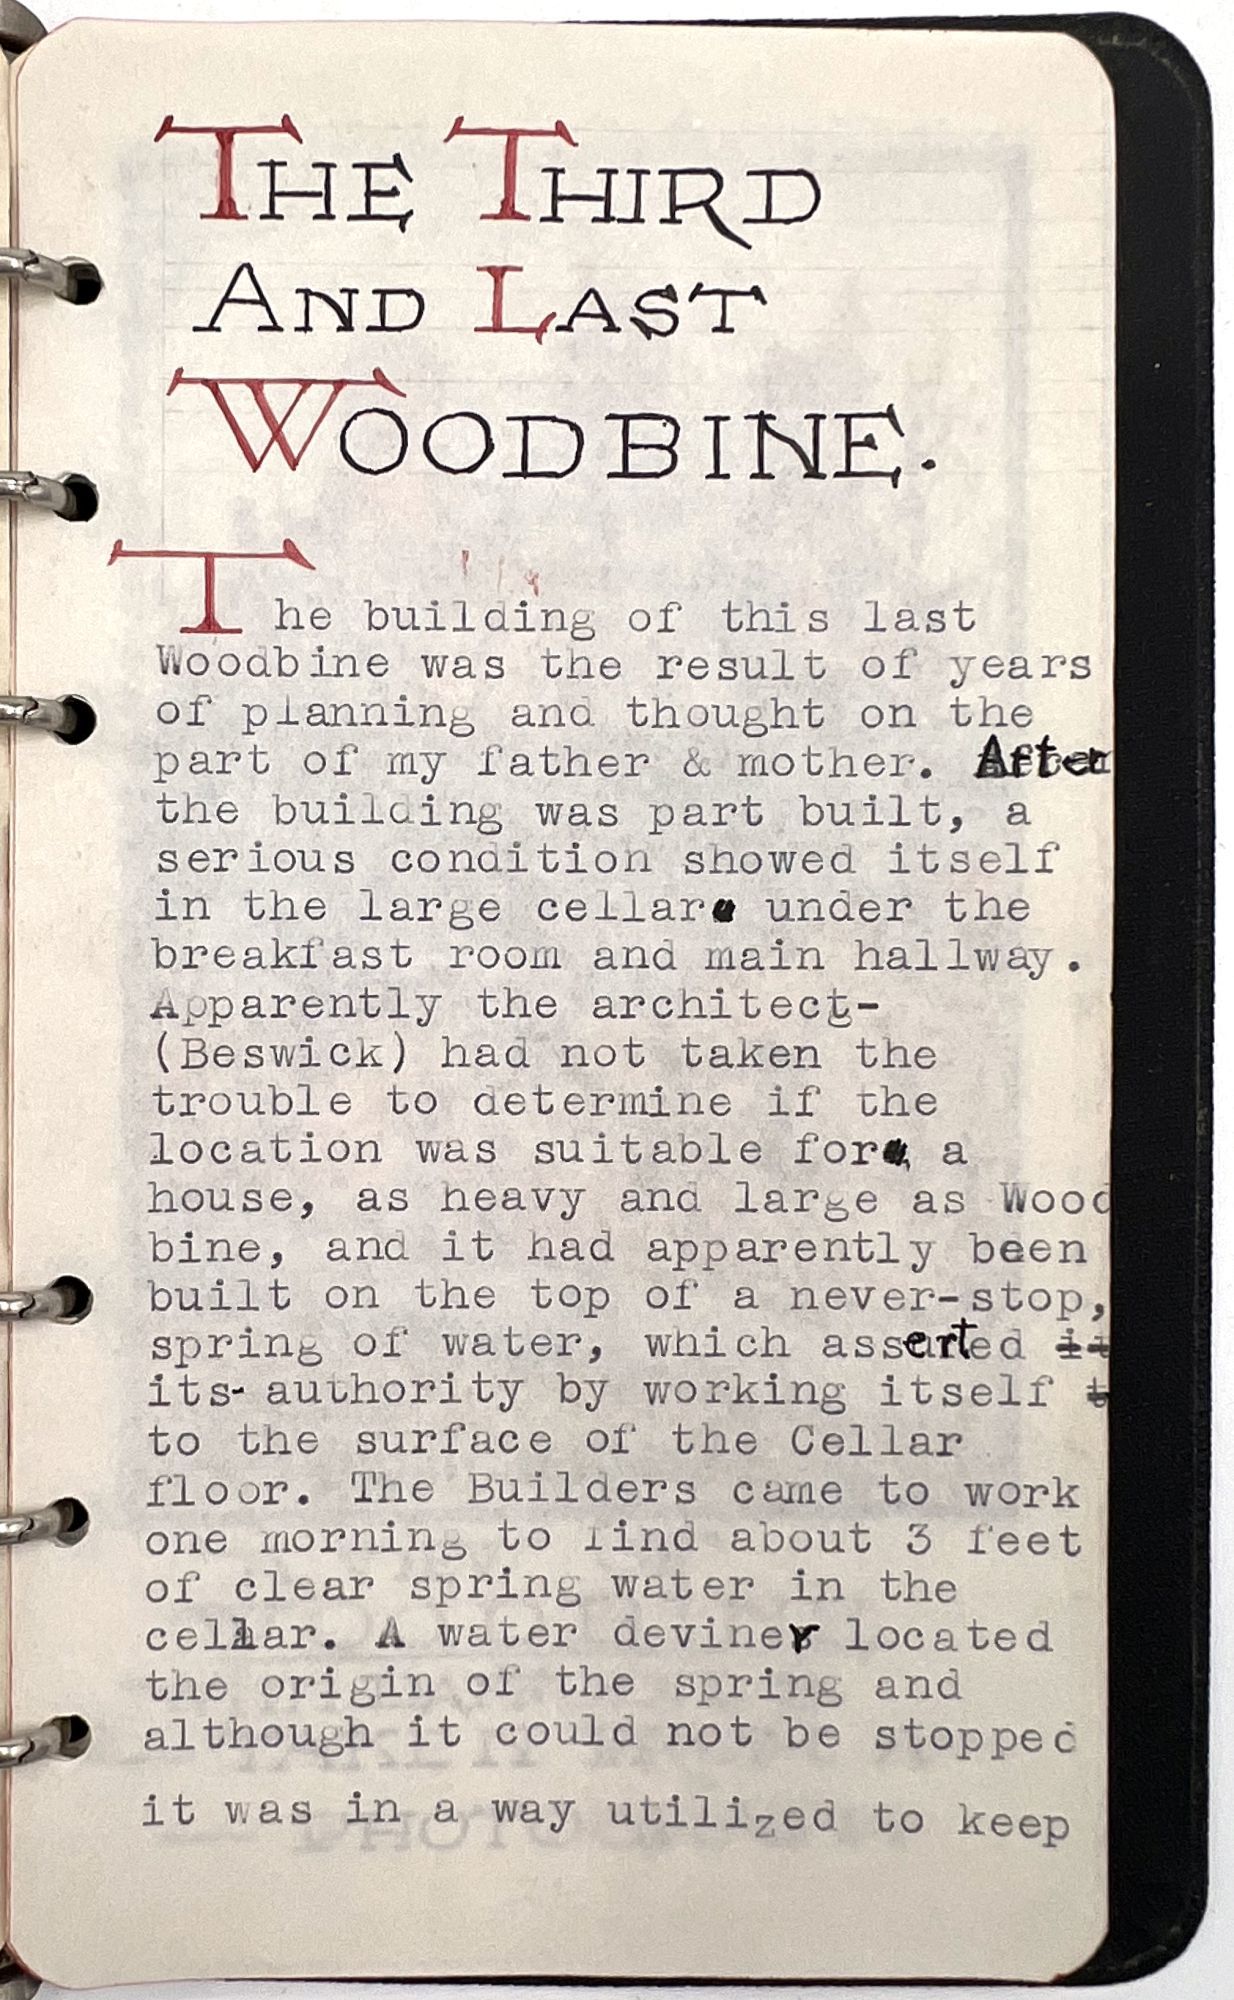 THE THIRD
AND LAST
WOODBINE.
The building of this last
Woodbine was the result of years
of planning and thought on the
part of my father & mother. After
the building was part built, a
serious condition showed itself
in the large cellar under the
breakfast room and main hallway.
Apparently the architect-
(Beswick) had not taken the
trouble to determine if the
location was suitable for a
house, as heavy and large as Wood
bine, and it had apparently been
built on the top of a never-stop,
spring of water, which asserted it
its- authority by working itself t
to the surface of the Cellar
floor. The Builders came to work
one morning to find about 3 feet
of clear spring water in the
cellar. A water deviner located
the origin of the spring and
although it could not be stopped
it was in a way utilized to keep